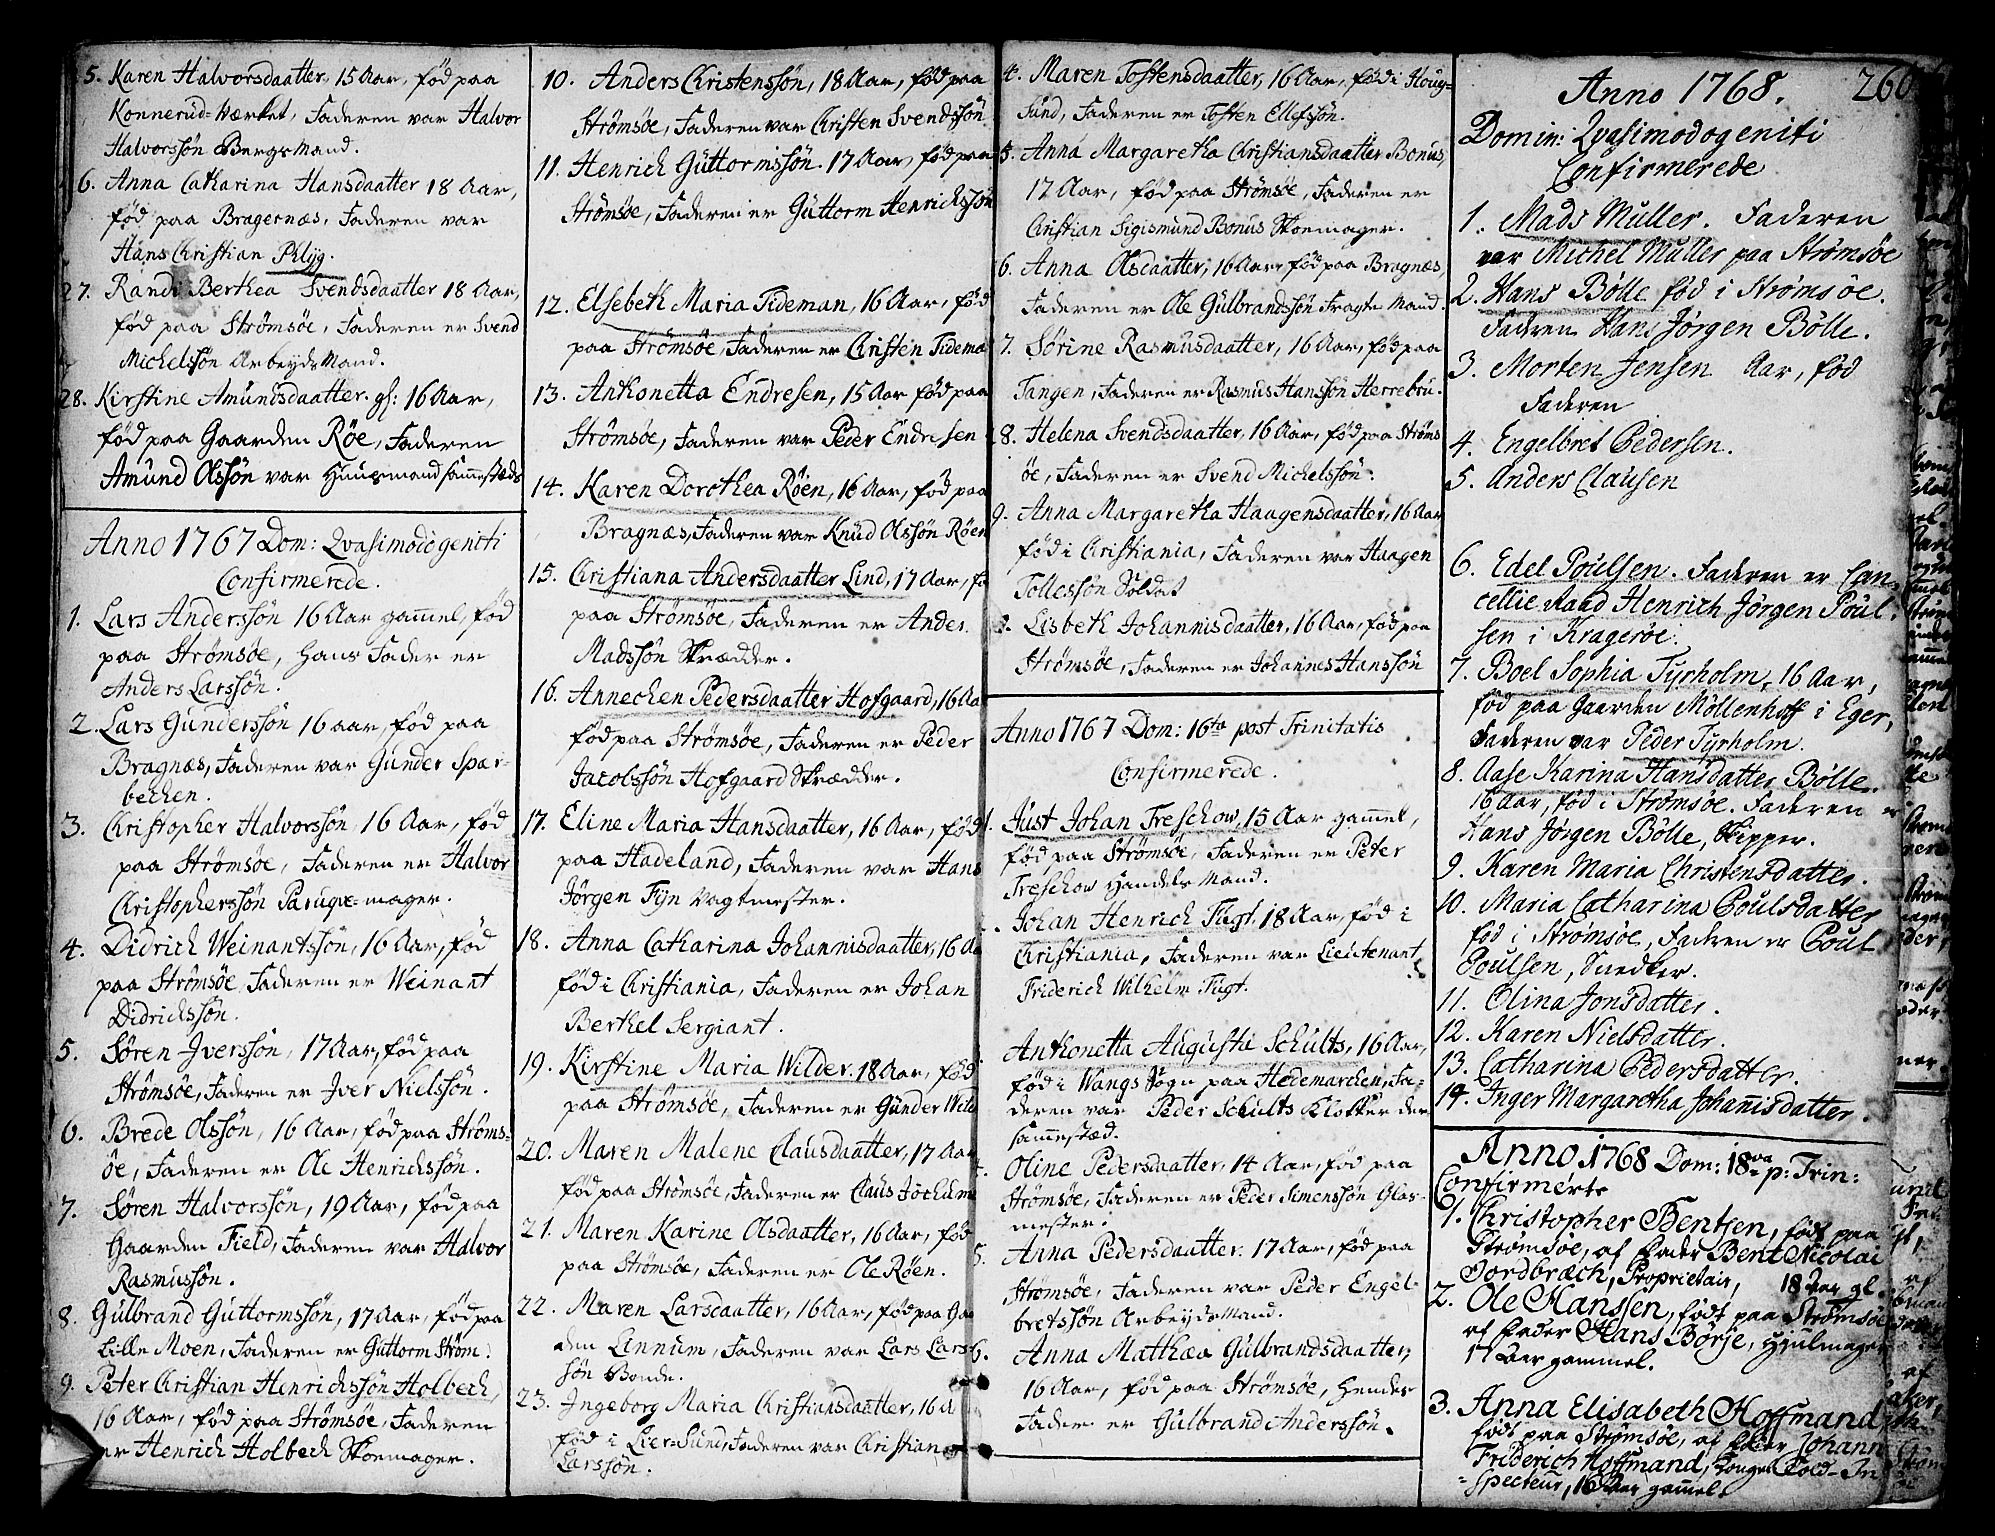 5. Karen Halvorsdaatter, 15 Aar, fød paa
Konnerud-Værket, Faderen var Halvor
Halvorssøn BergsMand.
6. Anna Catharina Hansdaatter 18 Aar,
fød paa Bragernæs, Faderen var
Hans Christian
27. Randi Berthea Svendsdaatter 18 Aar,
fød paa Strømsøe, Faderen er Svend
Michelssøn ArbeydsMand.
28. Kirstine Amundsdaatter. gl: 16 Aar,
fød paa Gaarden Røe, Faderen
Amund Olssøn var Huusmand sammestæds
Anno 1767 Dom: Qvasimodogeniti
Confirmerede.
1. Lars Anderssøn 16 Aar gammel, fød
paa Strømsøe, hans Fader er
Anders Larssøn.
2. Lars Gunderssøn 16 aar, fød paa
Bragnæs, Faderen var Gunder Spar-
bechen.
3. Christopher Halvorssøn, 16 Aar, fød
paa Strømsøe, Faderen er Halvor
Christopherssøn Paruqve-mager.
4. Didrich Weinantssøn, 16 Aar, fød
paa Strømsøe, Faderen er Weinant
Didrichssøn.
5. Søren Iverssøn, 17 Aar, fød paa
Strømsøe, Faderen er Iver Nielssøn.
6. Brede Olssøn, 16 Aar, fød paa Strøms-
øe, Faderen er Ole Henrichssøn.
7. Søren Halvorssøn, 19 Aar, fød paa
Gaarden Field, Faderen var Halvor
Rasmussøn.
8. Gulbrand Guttormssøn, 17 Aar, fød paa
Lille Moen, Faderen er Guttorm Strøm.
9. Peter Christian Henrichssøn Holbech,
16 Aar, fød paa Strømsøe, Faderen
er Henrich Holbech Skoemager.
10. Anders Christenssøn, 18 Aar, fød paa
Strømsøe, Faderen var Christen Svendssøn
11. Henrich Guttormssøn. 17 Aar, fød paa
Strømsøe, Faderen er Guttorm Henrichssøn
12. Elsebeth Maria Tideman, 16 Aar, fød
paa Strømsøe, Faderen er Christen Tidema
13. Anthonetta Endresen, 15 Aar fød paa
Strømsøe, Faderen var Peder Endresen
14. Karen Dorothea Røen, 16 Aar, fød paa
Bragnæs, Faderen var Knud Olssøn Røen
15. Christiana Andersdaatter Lind, 17 Aar, fø
paa Strømsøe, Faderen er Anders
Madssøn Skrædder.
16. Annechen Pedersdaatter Hofgaard, 16 Aar
fød paa Strømsøe, Faderen er Peder
Jacobssøn Hofgaard Skrædder.
17. Eline Maria Hansdaatter, 16 Aar, fød
paa Hadeland, Faderen var Hans
Jørgen Fyn Vagtmester.
18. Anna Catharina Johannisdaatter, 16 Aa
fød i Christiania, Faderen er Johan
Berthel Sergiant.
19. Kirstine Maria Wilder. 18 Aar, fød
paa Strømsøe, Faderen er Gunder Wild
20. Maren Malene Clausdaatter, 17 Aar
fød paa Strømsøe, Faderen er Claus Jochums
21. Maren Karine Olsdaatter, 16 Aar, fød
paa Strømsøe, Faderen er Ole Røen.
22. Maren Larsdaatter, 16 Aar, fød paa Gaa
den Linnum, Faderen var Lars Lars-
søn Bonde.
23. Ingeborg Maria Christiansdaatter, 16 A
fød i Lier-Sund, Faderen var Christian
Larssøn.
4. Maren Tostensdaatter, 16 Aar, fød i Houg-
sund, Faderen er Tosten Ellefssøn.
5. Anna Margaretha Christiansdaatter Bonus,
17 Aar, fød paa Strømsøe, Faderen er
Christian Sigismund Bonus Skoemager.
6. Anna Olsdaatter, 16 Aar, fød paa Bragnæs,
Faderen er Ole Gulbrandssøn Fragte Mand.
7. Sørine Rasmusdaatter, 16 Aar, fød paa
Tangen, Faderen er Rasmus Hanssøn Herrebru.
8. Helena Svendsdaatter, 16 Aar, fød paa Strøms
øe, Faderen er Svend Michelssøn.
9. Anna Margaretha Haagensdaatter, 16 Aar
fød i Christiania, Faderen var Haagen
Tollessøn Soldat
Lisbeth Johannisdaatter, 16 Aar, fød paa
Strømsøe, Faderen er Johannes Hanssøn
Anno 1767 Dom: 16ta post Trinitatis
Confirmerede.
1. Just Johan Treschow, 15 Aar gammel,
fød paa Strømsøe, Faderen er Peter
Treschow Handels Mand.
Johan Henrich Fugt. 18 Aar, fød i
Christiania, Faderen var Lieutenant
Friderich Wilhelm Fugt.
Anthonetta Augusta Schults, 16 Aar,
fød i Wangs Sogn paa Hedemarchen, Fa-
deren var Peder Schults Klokker der
sammestæd.
Oline Pedersdaatter, 14 Aar, fød paa
Strømsøe, Faderen er Peder Simenssøn Glas-
mester.
5. Anna Pedersdaatter. 17 Aar, fød paa
Strømsøe, Faderen var Peder Engel-
bretssøn ArbeydsMand.
6. Anna Matthæa Gulbrandsdaatter,
16 Aar, fød paa Strømsøe, hendes
Fader er Gulbrand Anderssøn.
260
Anno 1768.
Domin: Qvasimodogeniti
Confirmerede
1. Mads Muller. Faderen
var Michel Muller paa Strømsøe
2. Hans Bølle fød i Strømsøe.
Fadren Hans Jørgen Bølle.
3. Morten Jensen Aar, fød
Faderen
4. Engelbret Pedersen.
5. Anders Clausen
6. Edel Poulsen. Faderen er Can-
cellie Raad Henrich Jørgen Poul-
sen i Kragerøe.
7. Boel Sophia Tyrholm, 16 Aar,
fød paa Gaarden Møllenhoff i Eger,
Faderen var Peder Tyrholm.
8. Aase Karina Hansdatter Bølle.
16 Aar, fød i Strømsøe. Faderen er
Hans Jørgen Bølle, Skipper.
9. Karen Maria Christensdatter.
10. Maria Catharina Poulsdatter
fød i Strømsøe, Fadren er Poul
Poulsen, Snedker.
11. Olina Jonsdatter.
12. Karen Nielsdatter.
13. Catharina Pedersdatter.
14. Inger Margaretha Johannisdatter.
Anno 1768 Dom: 18va p: Trin:
Confirmerte
1. Christopher Bentsen, født paa
Strømsøe, af Fader Bent Nicolai
Jordbræch, Proprietair, 18 Aar gl.
2. Ole Hanssen, født paa Strømsøe
af Fader Hans Børje, Hjulmager
17 Aar gammel.
3. Anna Elisabeth Hoffmand,
født paa Strømsøe, af Fader Johann
Friderich Hoffmand, Konge Told-In
-specteur, 16 Aar gammel.